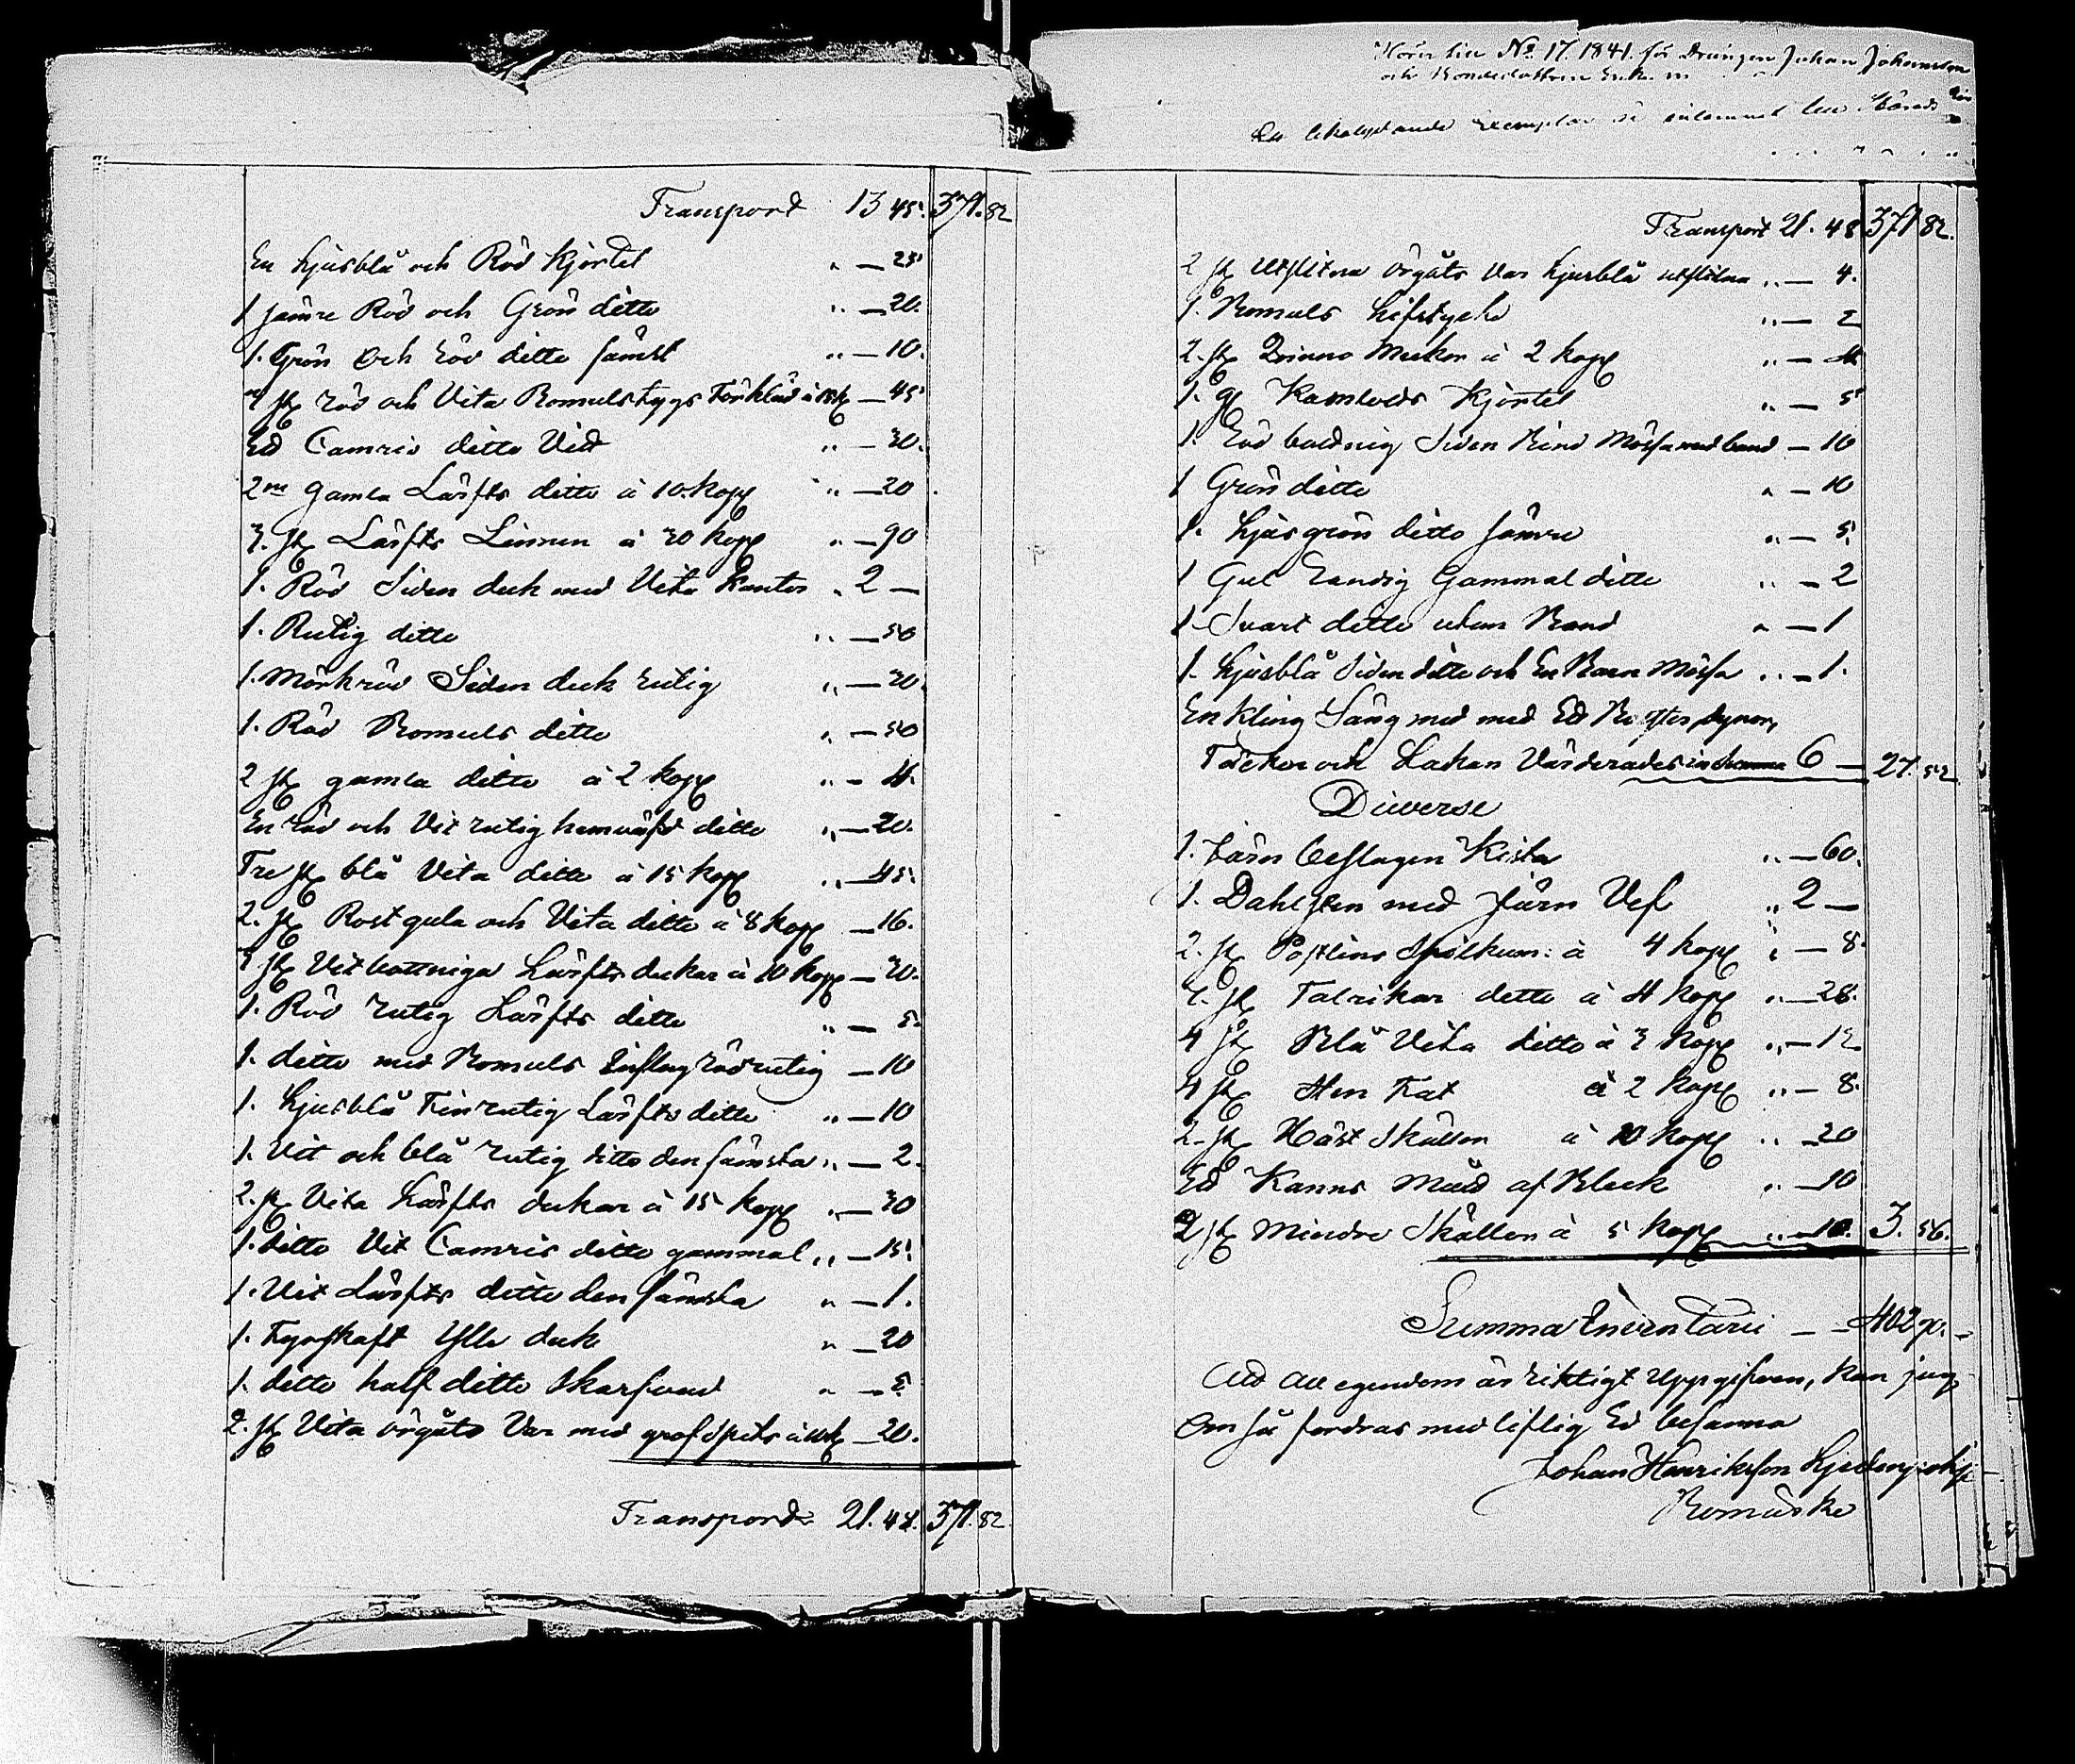 Transport 13 45. 371. 82
En Ljusblå och Röd Kjortel " — 25
1 sämre Röd och Grön ditto " — 20.
1. Grön och röd ditto sämst " — 10.
3 st röd och Vita Bomulstygs Förkläd à 15 k — 45
Ed Camric ditto Vid " — 30.
2ne gamla Lärfts ditto à 10 kopp " — 20
3. st Lärfts Linnen à 30 kopp " — 90
1. Röd Siden duk med Vita Kanter " 2 —
1. Rutig ditto " — 50
1. Mörkröd Siden duk rutig " — 20.
1. Röd Bomuls ditto " — 50
2 st gamla ditto à 2 kopp " — 4.
En röd och Vit rutig hemväfd ditto " — 20.
Tre st blå Vita ditto à 15 kopp " — 45.
2. st Rostgula och Vita ditto à 8 kopp — 16.
3 st Vitbottniga Lärfts dukar à 10 kopp — 30.
1. Röd rutig Lärfts ditto " — 5.
1. ditto med Bomuls Inslag rödrutig — 10
1. Ljusblå Finrutig Lärfts ditto " — 10
1. Vit och blå rutig ditto den sämsta " — 2.
2. st Vita Lärfts dukar à 15 kopp " — 30
1. ditto Vit Camric ditto gammal " — 15.
1. Vit Lärfts ditto den sämsta " — 1.
1. Fyrskaft Ylle duk " — 20
1. ditto half ditto " — 5.
2. st Vita örgåts Var med grof spets à 10 k — 20.
Transport 21. 48. 371. 82.
No 17. 1841. för Drängen Johan Johansson
och Bondedottren
Ett likalydande Exemplar är inlemnat
Transport 21. 48 371 82.
2 st Utslitna örgåts Var Ljusblå utslitna " — 4.
1. Bomuls Lifstycke " — 2
2. st à 2 kopp " — 4
1. gl Kamlods Kjortel " — 5
1. Röd Siden Bind Mössa med band — 10
1 Grön ditto " — 10
1. Ljusgrön ditto sämre " — 5.
1 Gul Randig Gammal ditto " — 2
1. Svart ditto utan Band " — 1
1. Ljusblå Siden ditto och En Barn Mössa " — 1.
En Kling Säng med med Ed Bolster, dynor,
Täcken och Lakan Värderades in Summa 6 — 27. 52
Diverse
1. Järn beslagen Kista " — 60.
1. Dahlsten med Järn Vef " 2 —
2. st Postlins Spilkum: à 4 kopp " — 8.
7. st Talrikar ditto à 4 kopp " — 28.
4 st Blå Vita ditto à 3 kopp " — 12
4 st Sten Fat à 2 kopp " — 8.
2. st Häst Skällor à 10 kopp " — 20
Ed Kanns Mått af Bleck " — 10
2 st Mindre Skållor à 5 kopp " — 10. 3. 56.
Summa Inventarii — — 402 90. —
Att all egendom är riktigt uppgifven, kan jag
om så fordras med liflig Ed besanna
Johan Henriksson